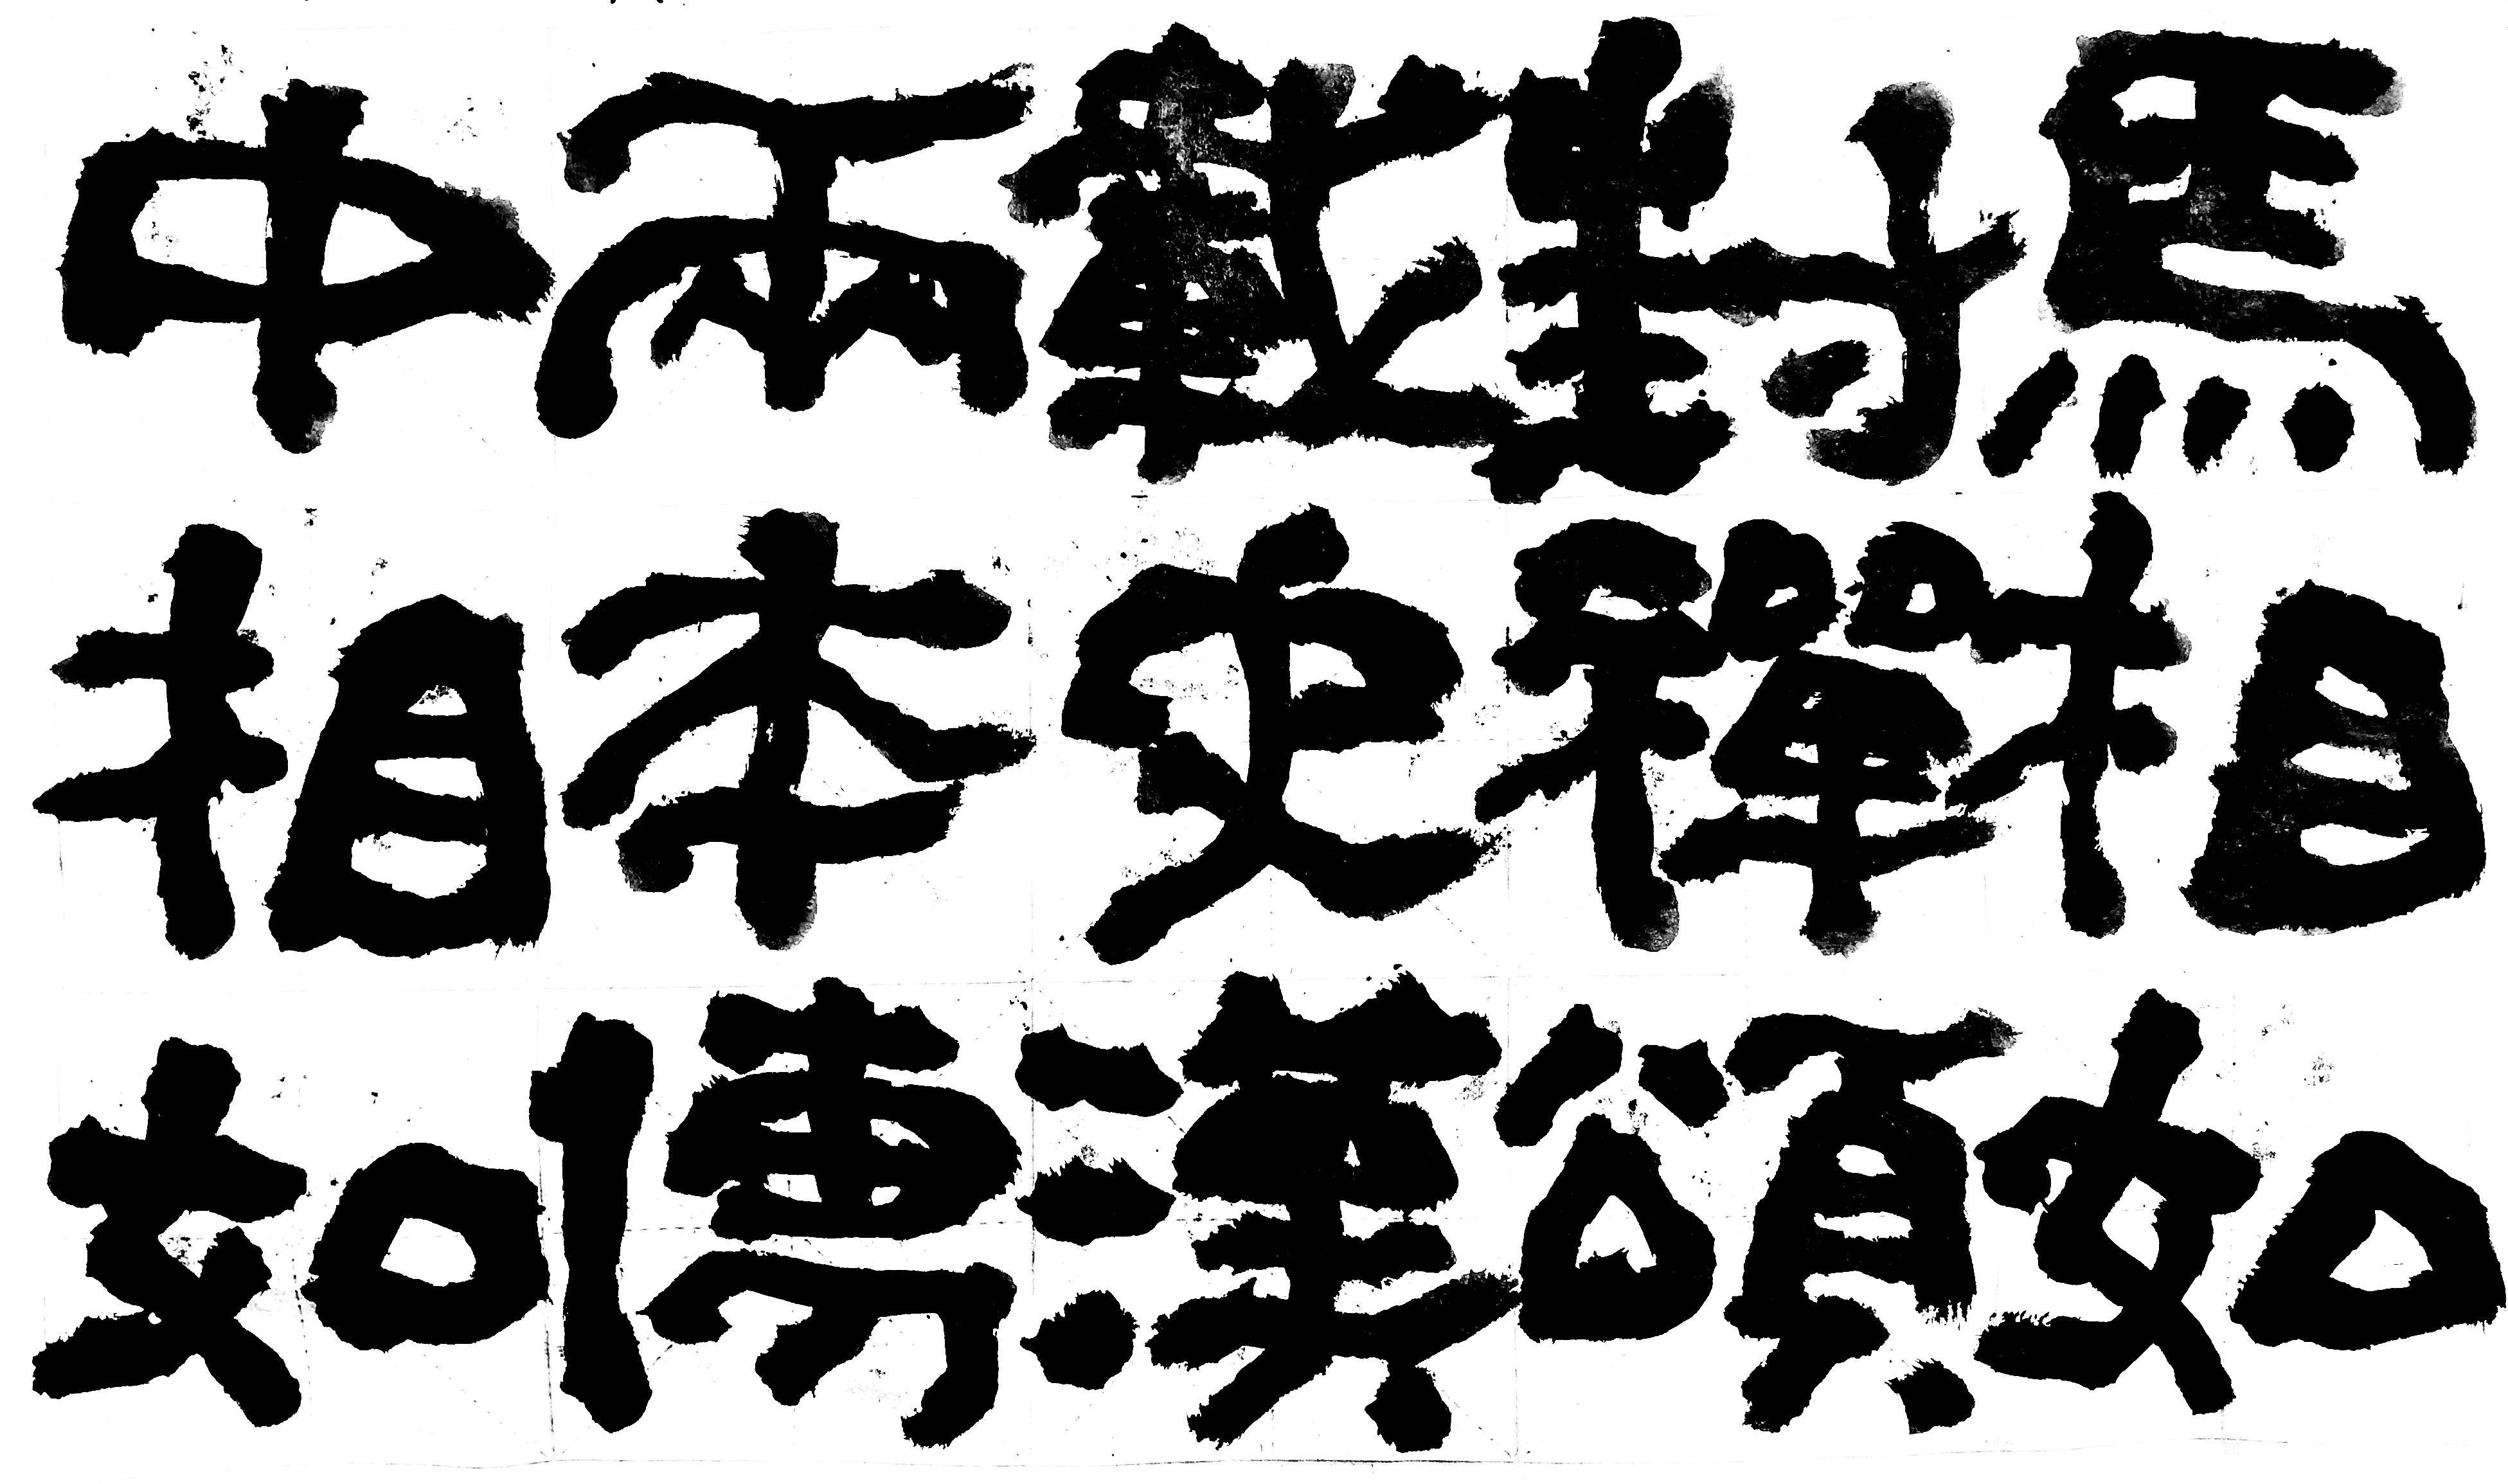 馬相如
封禪頌
載史漢
兩本傳
中相如